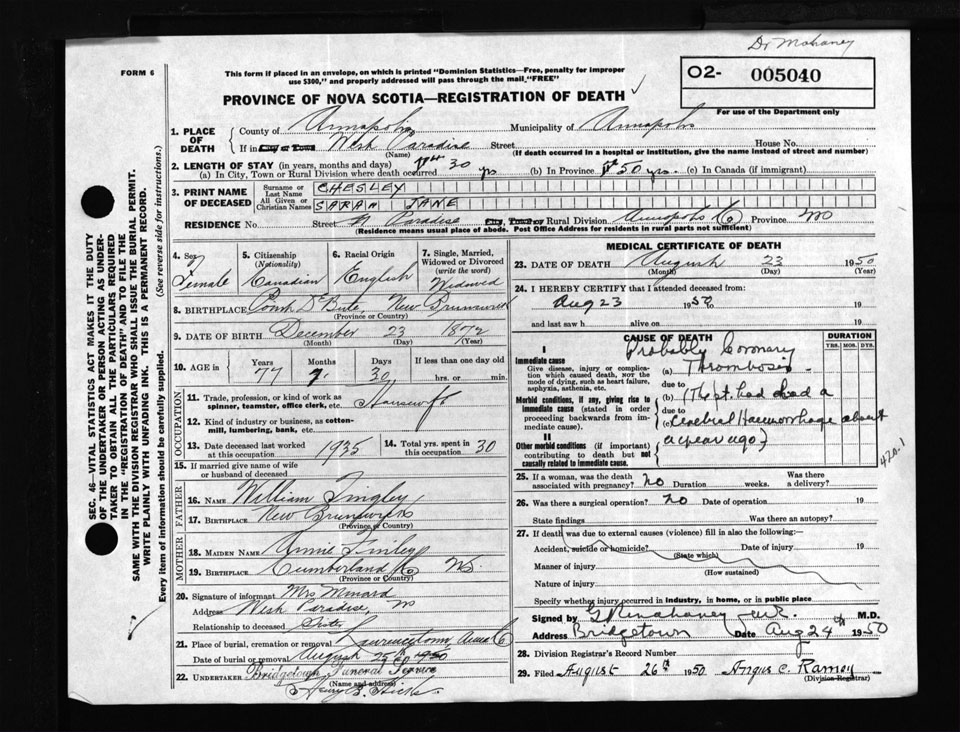 Dr Mahaney
FORM 6
This form if placed in an envelope, on which is printed "Dominion Statistics—Free, penalty for improper
use $300," and properly addressed will pass through the mail, "FREE"
O2- 005040
PROVINCE OF NOVA SCOTIA—REGISTRATION OF DEATH ✓
For use of the Department only
1. PLACE OF DEATH { County of Annapolis Municipality of Annapolis
If in City or Town West Paradise Street House No.
(Name) (If death occurred in a hospital or institution, give the name instead of street and number)
2. LENGTH OF STAY (in years, months and days)
(a) In City, Town or Rural Division where death occurred 30 yrs (b) In Province 50 yrs. (c) In Canada (if immigrant)
3. PRINT NAME OF DECEASED { Surname or Last Name CHESLEY
All Given or Christian Names SARAH JANE
RESIDENCE No. Street W Paradise City, Town or Rural Division Annapolis Co Province NS
(Residence means usual place of abode. Post Office Address for residents in rural parts not sufficient)
4. Sex Female
5. Citizenship (Nationality) Canadian
6. Racial Origin English
7. Single, Married, Widowed or Divorced (write the word) Widowed
8. BIRTHPLACE Point De Bute, New Brunswick
(Province or Country)
9. DATE OF BIRTH December 23 1872
(Month) (Day) (Year)
10. AGE in { Years 77 Months 7 Days 30 If less than one day old
hrs. or min.
OCCUPATION
11. Trade, profession, or kind of work as
spinner, teamster, office clerk, etc. Housewife
12. Kind of industry or business, as cotton-
mill, lumbering, bank, etc.
13. Date deceased last worked at this occupation 1935
14. Total yrs. spent in this occupation 30
15. If married give name of wife
or husband of deceased
FATHER
16. Name William Tingley
17. Birthplace New Brunswick
(Province or Country)
MOTHER
18. Maiden Name Annie Finley
19. Birthplace Cumberland Co NS.
(Province or Country)
20. Signature of informant Mrs Minard
Address West Paradise, NS
Relationship to deceased Sister
21. Place of burial, cremation or removal Lawrencetown, Anna Co
Date of burial or removal August 25th 1950
22. UNDERTAKER Bridgetown Funeral Service
(Name and address)
Henry B. Hicks
MEDICAL CERTIFICATE OF DEATH
23. DATE OF DEATH August 23 1950
(Month) (Day) (Year)
24. I HEREBY CERTIFY that I attended deceased from:
Aug 23 1950 to 19
and last saw h alive on 19
CAUSE OF DEATH
DURATION
YRS. MOS. DYS.
I
Immediate cause
Give disease, injury or compli-
cation which caused death, NOT the
mode of dying, such as heart failure,
asphyxia, asthenia, etc.
Probably Coronary
(a) Thrombosis.
due to
Morbid conditions, if any, giving rise to
immediate cause (stated in order
proceeding backwards from im-
mediate cause).
(b) (The pt. had had a
due to
(c) Cerebral Haemorrhage about
a year ago)
II
Other morbid conditions (if important)
contributing to death but not
causally related to immediate cause.
420.1
25. If a woman, was the death
associated with pregnancy? No Duration weeks. Was there
a delivery?
26. Was there a surgical operation? No Date of operation 19
State findings Was there an autopsy?
27. If death was due to external causes (violence) fill in also the following:—
Accident, suicide or homicide? Date of injury 19
(State which)
Manner of injury
(How sustained)
Nature of injury
Specify whether injury occurred in industry, in home, or in public place
Signed by M.D.
Address Bridgetown Date Aug 24th 1950
28. Division Registrar's Record Number
29. Filed August 26th 1950 Angus C. Ramey
(Division Registrar)
SEC. 46—VITAL STATISTICS ACT MAKES IT THE DUTY
OF THE UNDERTAKER OR PERSON ACTING AS UNDER-
TAKER TO OBTAIN ALL THE PARTICULARS REQUIRED
IN THE "REGISTRATION OF DEATH" AND TO FILE THE
SAME WITH THE DIVISION REGISTRAR WHO SHALL ISSUE THE BURIAL PERMIT.
WRITE PLAINLY WITH UNFADING INK. THIS IS A PERMANENT RECORD.
Every item of information should be carefully supplied. (See reverse side for instructions.)